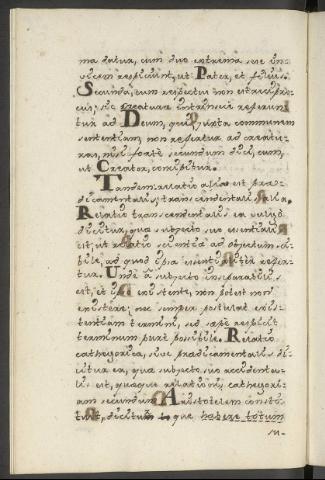 ma datur, cum duo extrema sese in=
vicem respiciunt, ut Pater, et filius.
Secunda, cum respectus non est recipro=
cus; sic creaturæ intrinsice referun
tur ad Deum, qui juxta communem
sententiam non refertur ad creatu=
ras, nisi forte secundum dici, cum,
ut Creator, concipitur.
Tandem relatio alia est præ=
dicamentalis; transcendentalis alia.
Relatio transcendentalis ea vulgo
dicitur, quæ subjecto suo essentialis
est; ut relatio scientiæ ad objectum sci
bile, ad quod ipsa essentialiter refer=
tur. Unde a subjecto inseparabilis
est, et eo existente, non potest non
existere; nec semper postulat exis=
tentiam termini, sed sæpe respicit
terminum pure possibile. Relatio
cathegorica, sive prædicamentalis di
citur ea, quæ subjecto suo accidenta=
lis est, quæque relationis cathegori=
am secundum Aristotelem consti
tuit, diciturque habere totum
su-